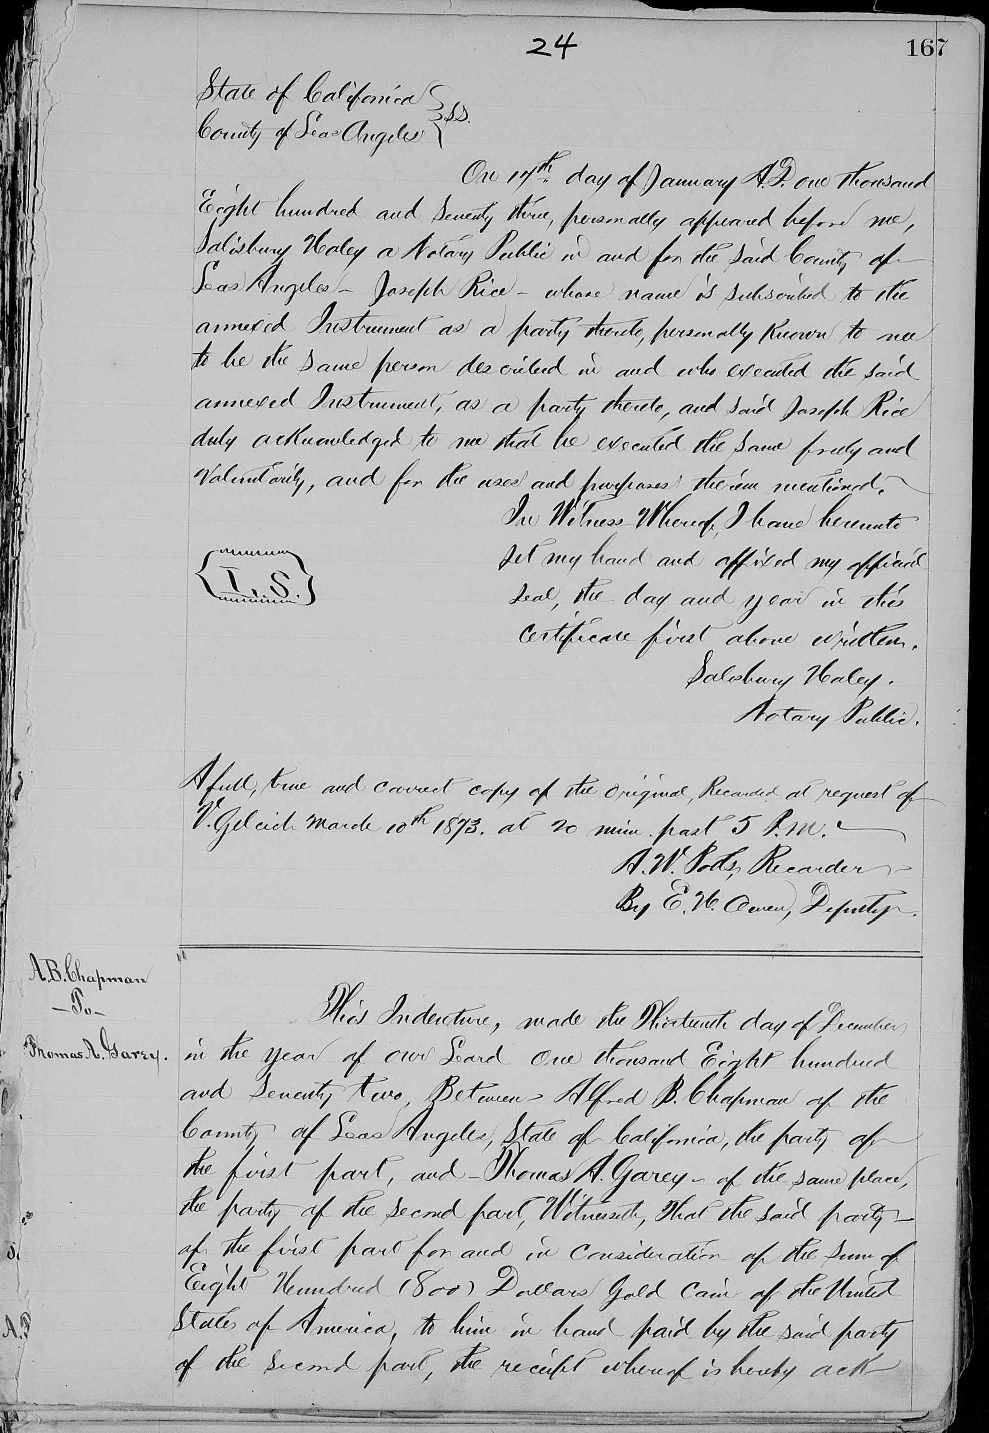 24
167
State of California
County of Los Angeles } SS.
On 17th day of January A.D. one thousand
Eight hundred and Seventy three, personally appeared before me,
Salisbury Haley a Notary Public in and for the said County of
Los Angeles - Joseph Rice - whose name is subscribed to the
annexed Instrument as a party thereto, personally known to me
to be the same person described in and who executed the said
annexed Instrument, as a party thereto, and said Joseph Rice
duly acknowledged to me that he executed the same freely and
Voluntarily, and for the uses and purposes therein mentioned.
In Witness Whereof, I have hereunto
set my hand and affixed my official
seal, the day and year in this
certificate first above written.
L.S.
Salisbury Haley.
Notary Public.
A full, true and correct copy of the original, Recorded at request of
V. March 10th 1873. at 20 min. past 5 P.M.
A.W. Potts, Recorder
By E.H. Owen, Deputy.
A.B. Chapman
-To-
Thomas A. Garey.
This Indenture, made the Thirteenth day of December
in the year of our Lord one thousand Eight hundred
and Seventy two, Between Alfred B. Chapman of the
County of Los Angeles, State of California, the party of
the first part, and - Thomas A. Garey - of the same place,
the party of the second part, Witnesseth, That the said party
of the first part for and in consideration of the sum of
Eight Hundred (800) Dollars Gold Coin of the United
States of America, to him in hand paid by the said party
of the second part, the receipt whereof is hereby ack